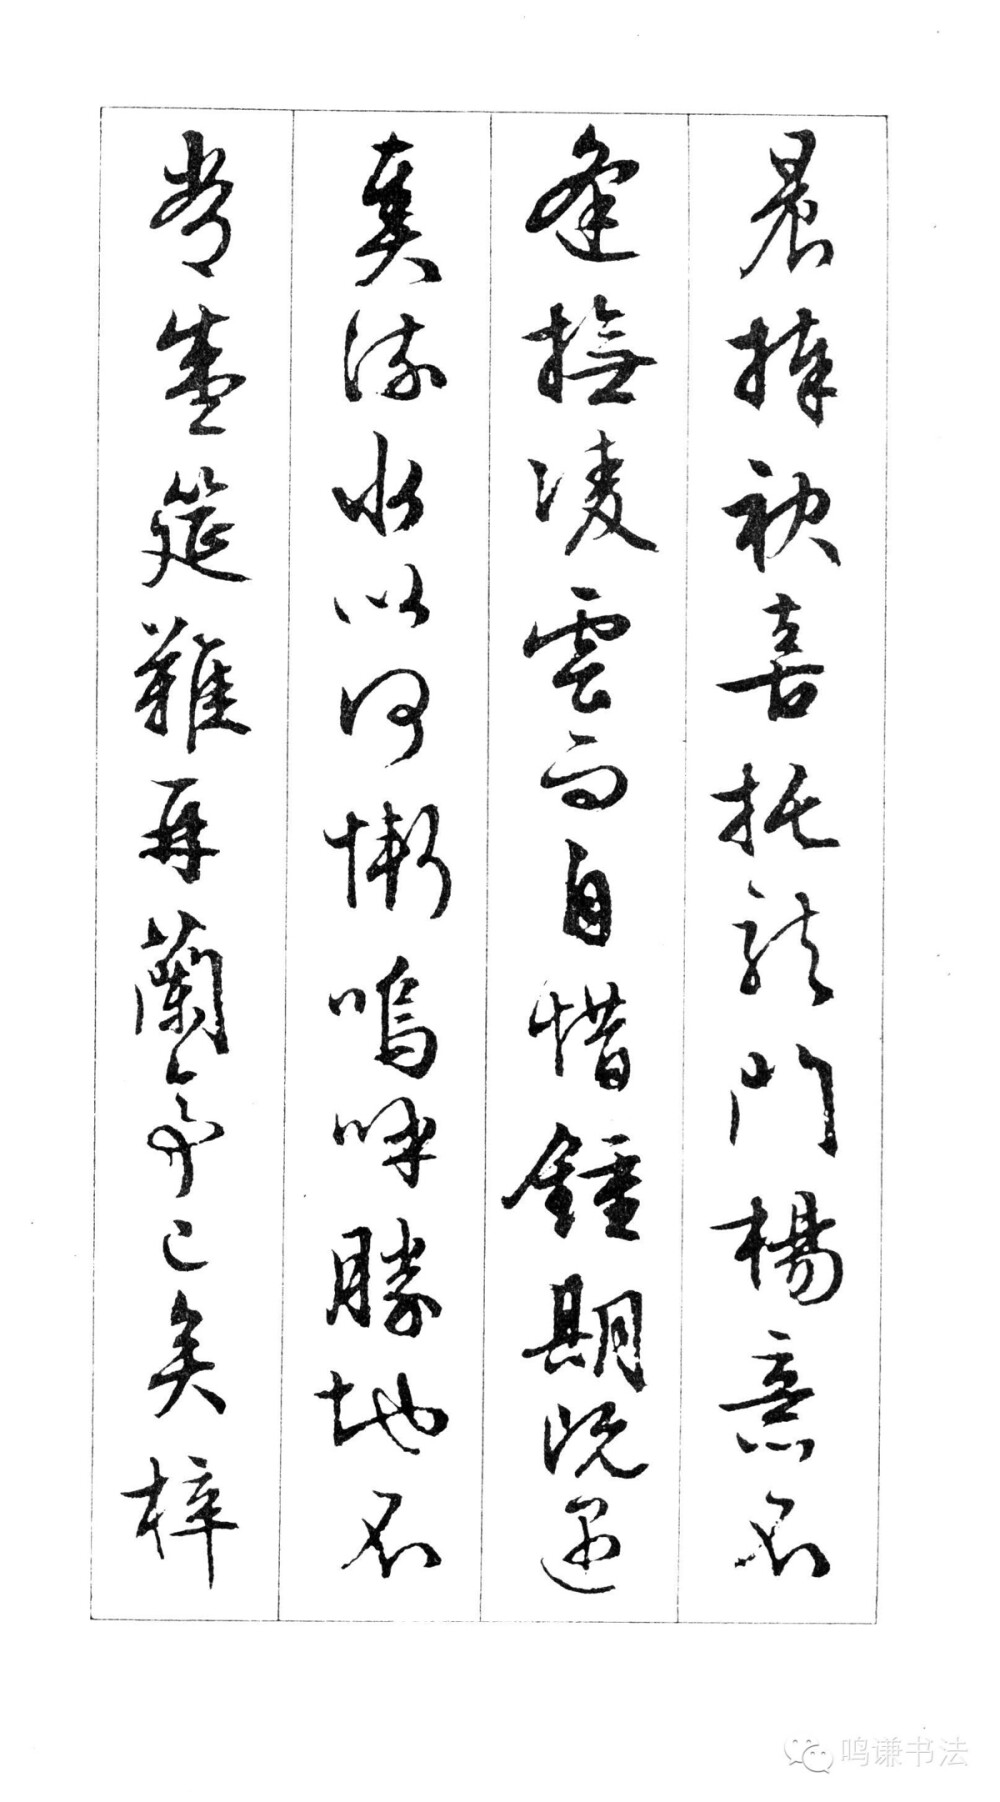 晨捧袂喜托龍門楊意不
逢撫凌雲而自惜鍾期既遇
奏流水以何慚嗚呼勝地不
常盛筵難再蘭亭已矣梓
鸣谦书法